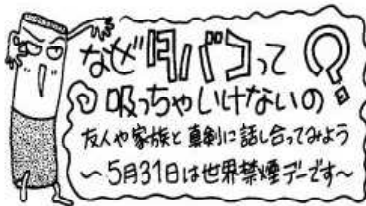 なぜタバコって?
吸っちゃいけないの
友人や家族と真剣に話し合ってみよう
〜5月31日は世界禁煙デーです〜